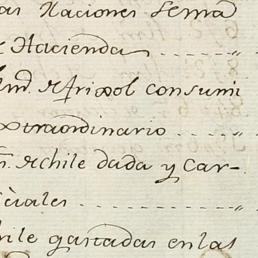 as Naciones Sema
e Hacienda
md. de frixol consumi
xtraordinario
n. de chile dada y Car-
ciales
hile gastadas en las